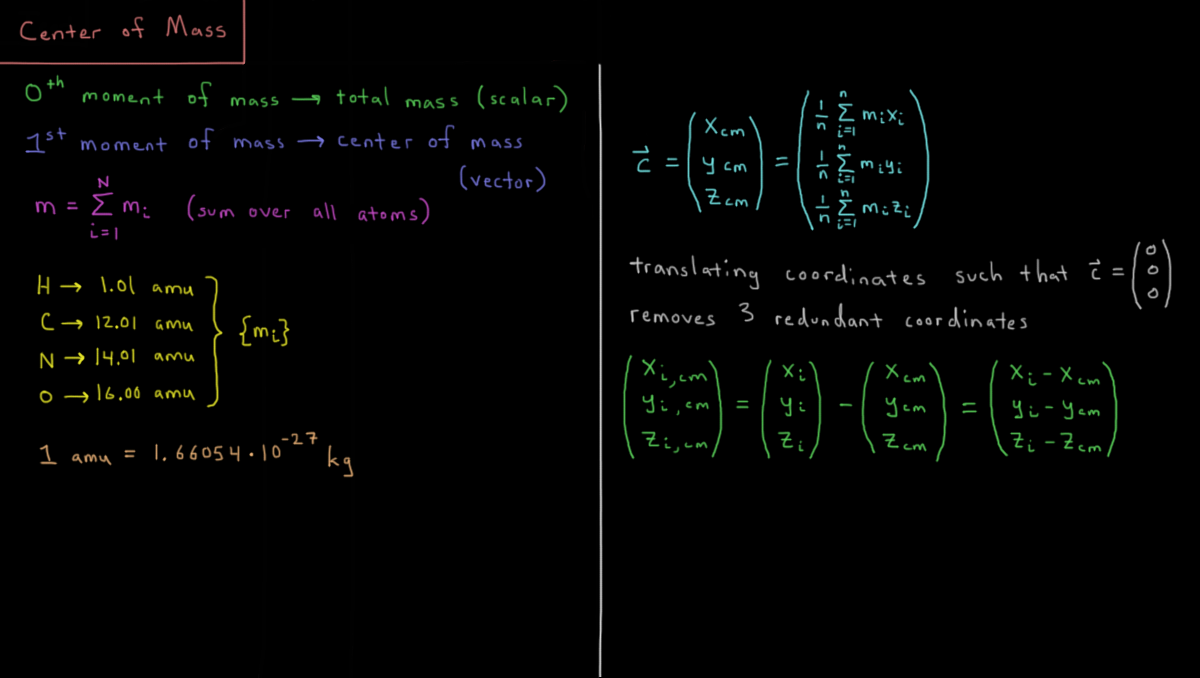 Center of Mass
0th moment of mass → total mass (scalar)
1st moment of mass → center of mass
(vector)
m = ∑_{i=1}^{N} m_i (sum over all atoms)
H → 1.01 amu
C → 12.01 amu
N → 14.01 amu
O → 16.00 amu
{m_i}
1 amu = 1.66054 · 10^{-27} kg
c⃗ = (x_cm y_cm z_cm) = (1/n ∑_{i=1}^{n} m_i x_i 1/n ∑_{i=1}^{n} m_i y_i 1/n ∑_{i=1}^{n} m_i z_i)
translating coordinates such that c⃗ = (0 0 0)
removes 3 redundant coordinates
(x_{i,cm} y_{i,cm} z_{i,cm}) = (x_i y_i z_i) - (x_cm y_cm z_cm) = (x_i - x_cm y_i - y_cm z_i - z_cm)